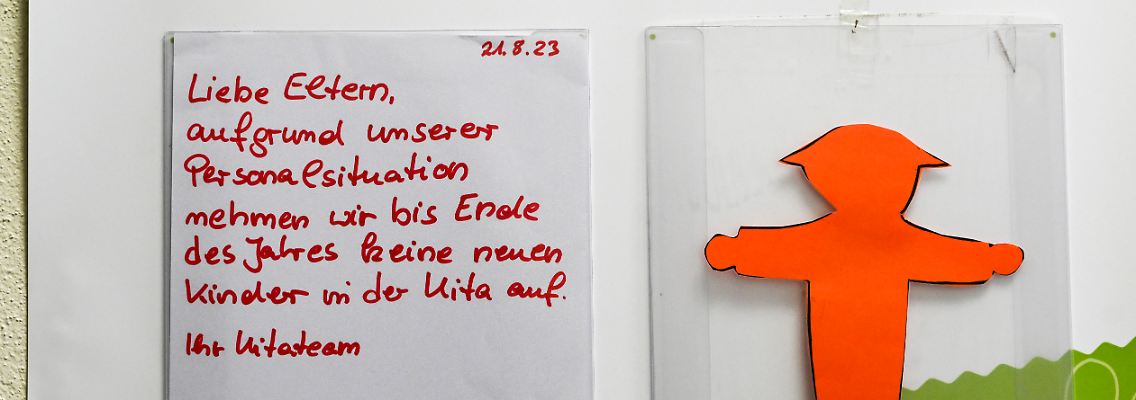 21.8.23
Liebe Eltern,
aufgrund unserer
Personalsituation
nehmen wir bis Ende
des Jahres keine neuen
Kinder in der Kita auf.
Ihr Kitateam